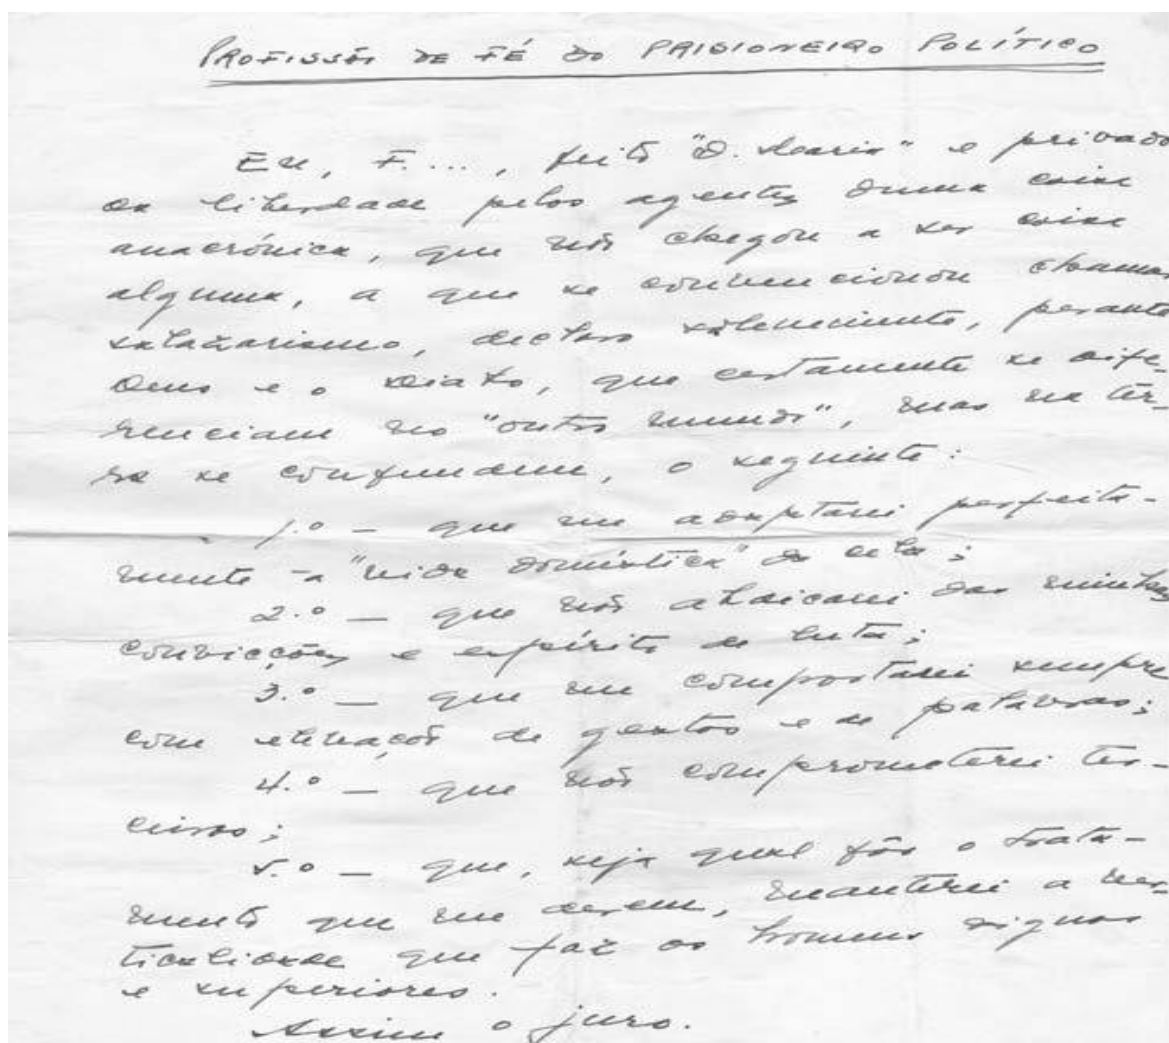 PROFISSÃO DE FÉ DO PRISIONEIRO POLÍTICO
Eu, F...., feito "D. Maria" e privado
da liberdade pelos agentes duma coisa
anacrónica, que não chegou a ser coisa
alguma, a que se convencionou chamar
salazarismo, declaro solenemente, perante
Deus e o Diabo, que certamente se dife-
renciam no "outro mundo", mas na ter-
ra se confundem, o seguinte:
1.º — que me adaptarei perfeita-
mente à "vida doméstica" da cela;
2.º — que não abdicarei das minhas
convicções e espírito de luta;
3.º — que me comportarei sempre
com elevação de gestos e de palavras;
4.º — que não comprometerei ter-
ceiros;
5.º — que, seja qual fôr o trata-
mento que me derem, manterei a ver-
ticalidade que faz os homens dignos
e superiores.
Assim o juro.